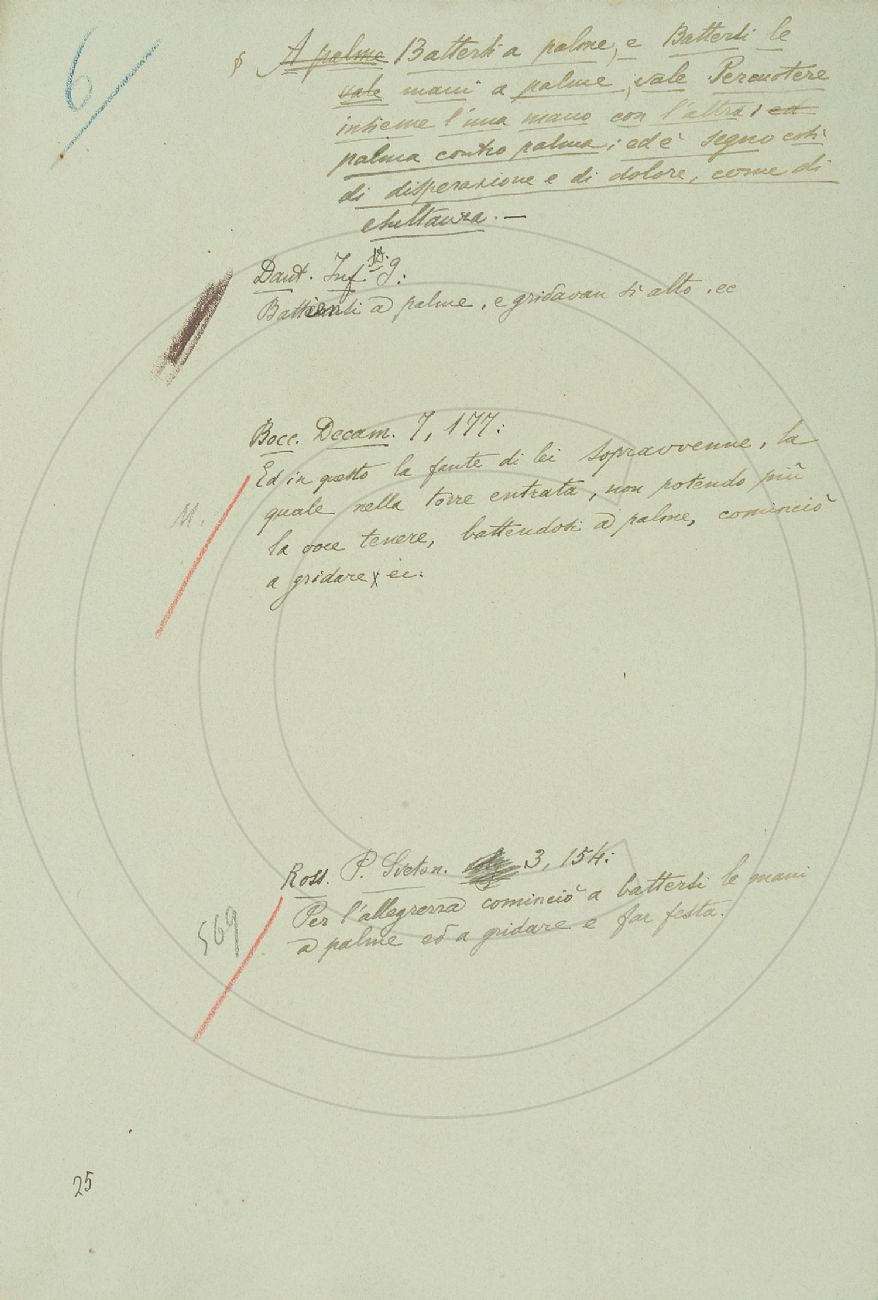 6
§ A palme Battersi a palme, e Battersi le
vale mani a palme, vale Percuotere
insieme l'una mano con l'altra, ed
palma contro palma; ed è segno così
di disperazione e di dolore, come di
esultanza. —
Dant. Inf. 9:
Battiensi a palme, e gridavan sì alto, ec
Bocc. Decam. 7, 177:
Ed in questo la fante di lei sopravvenne, la
quale nella torre entrata, non potendo più
la voce tenere, battendosi a palme, cominciò
a gridare, ec.
M.
Ross. P. Sveton. 3, 154:
Per l'allegrezza cominciò a battersi le mani
a palme ed a gridare e far festa.
569
25